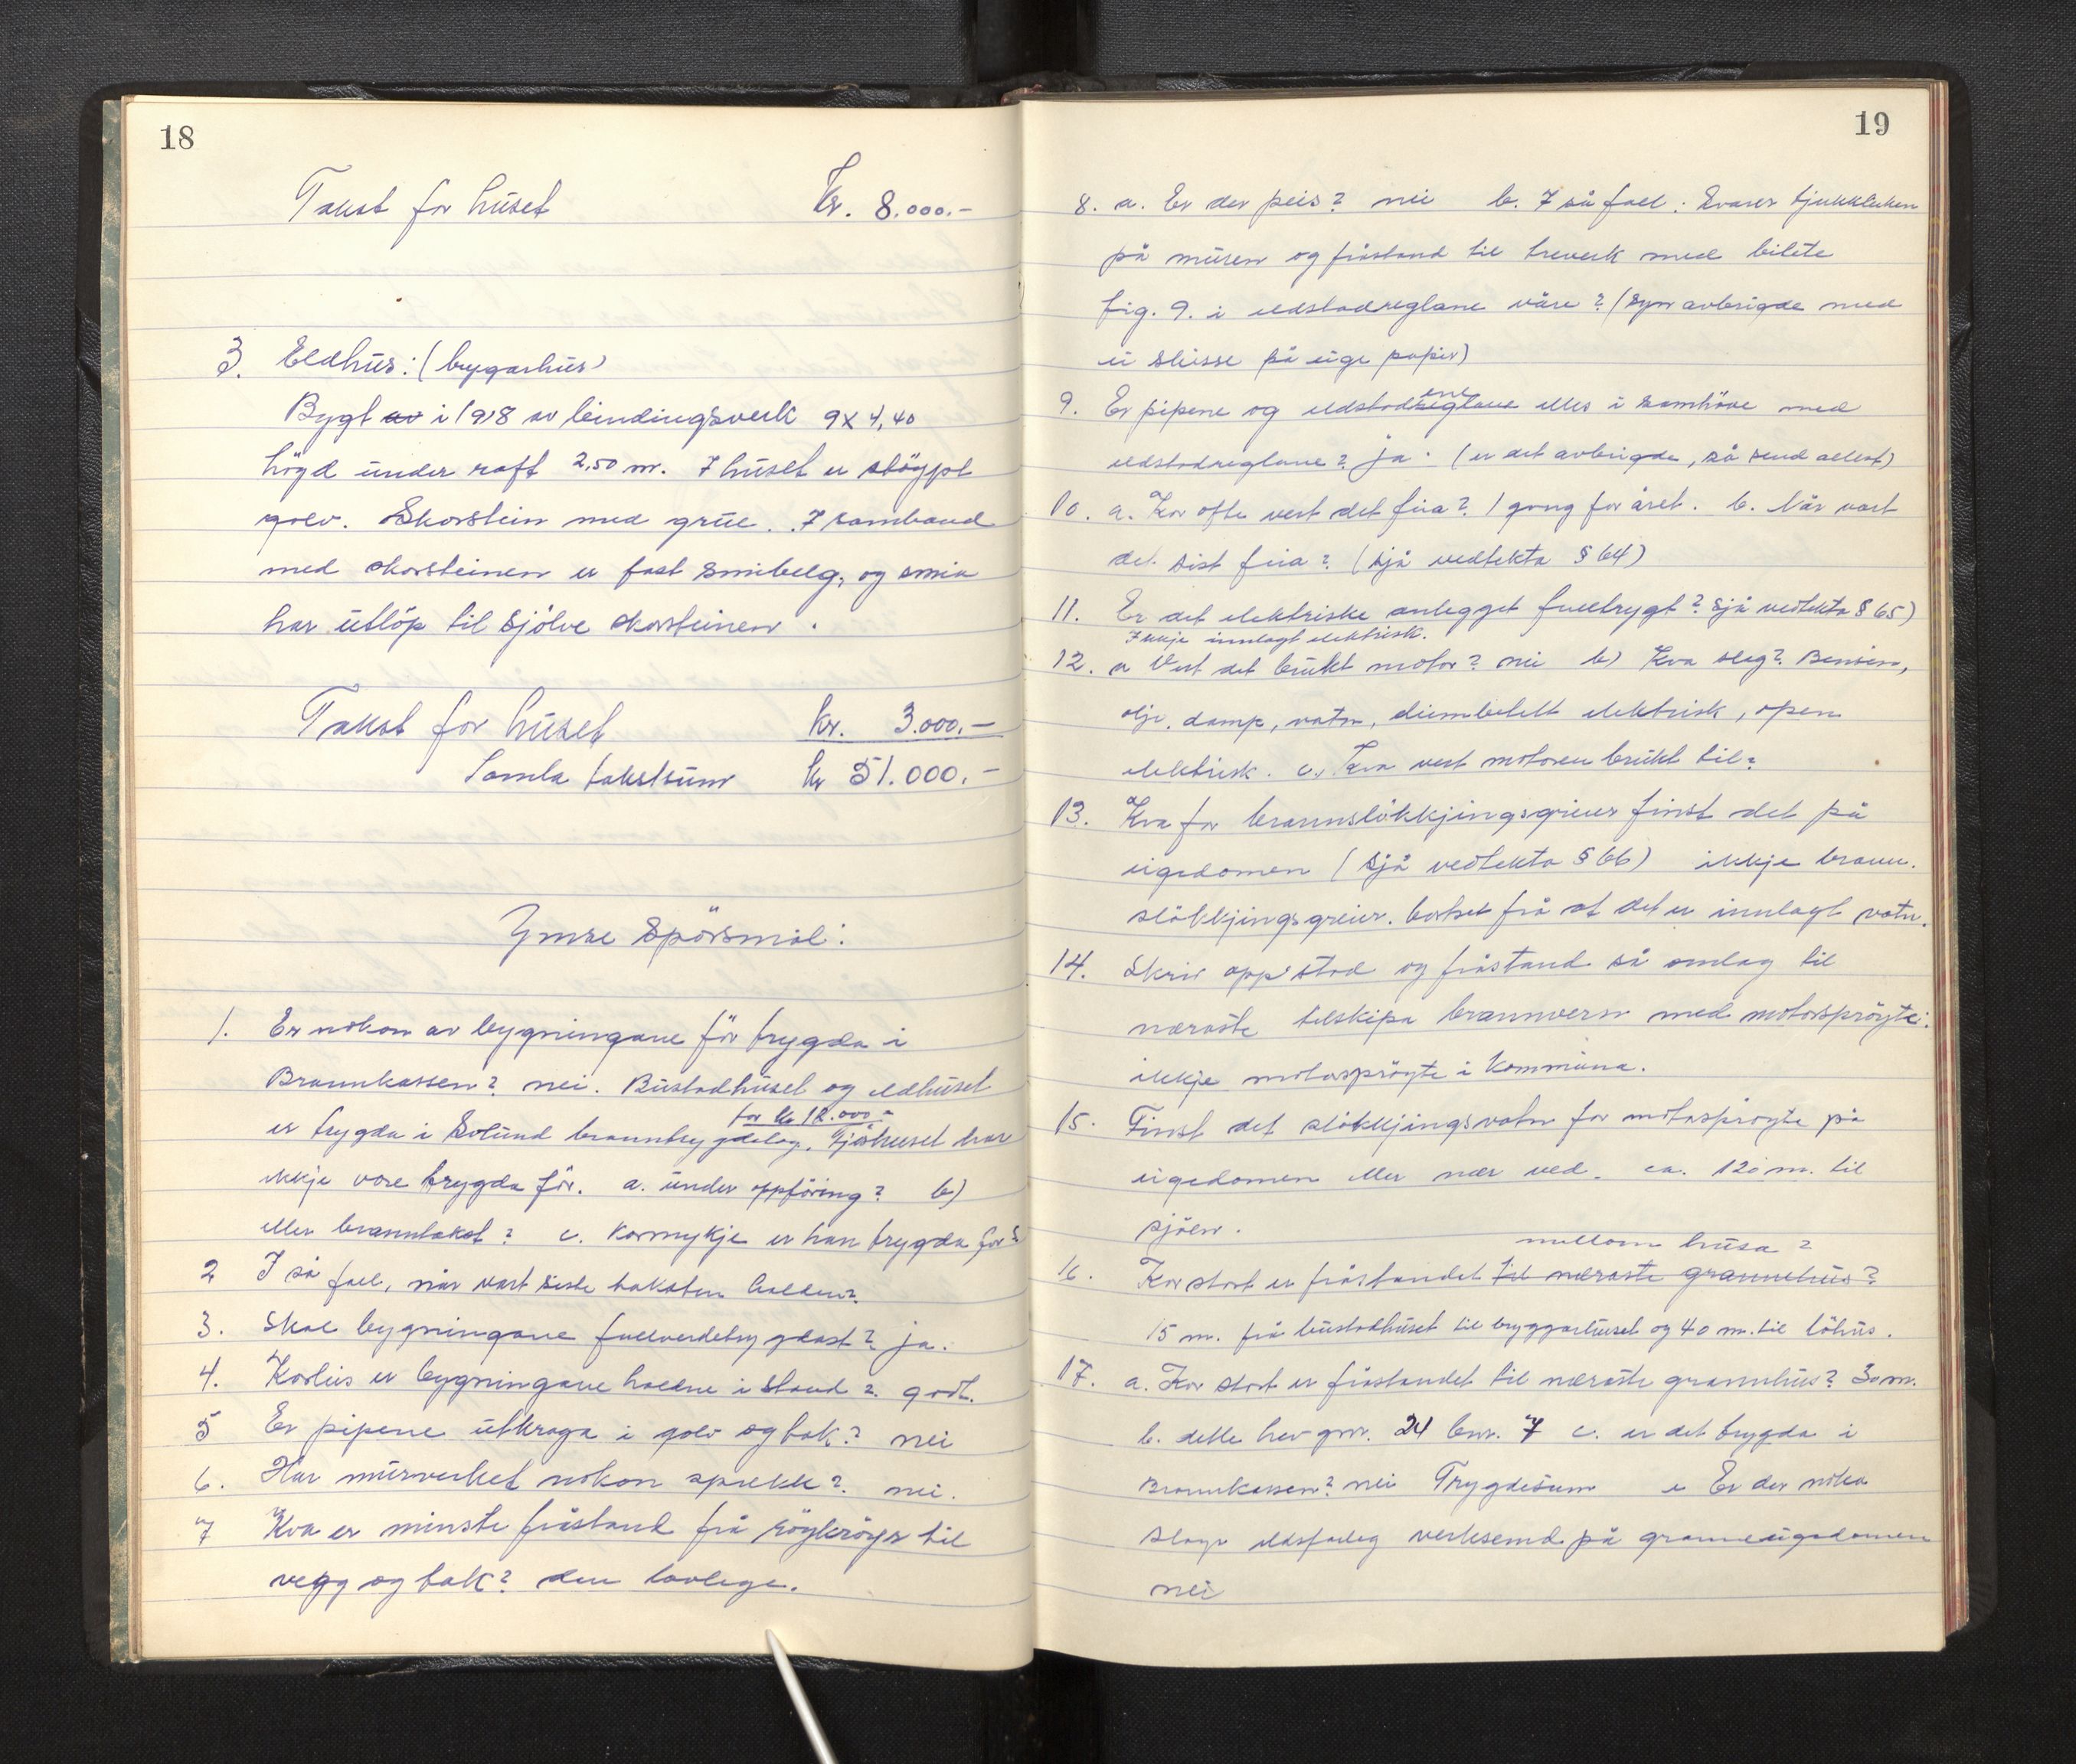 18
Takst for huset Kr. 8.000.-
3. Eldhus: (brygarhus)
Bygt av i 1918 av bindingsverk 9 x 4,40
högd under raft 2,50 m. I huset er stöypt
golv. Skorstein med grue. I samband
med skorsteinen er fast smibelg, og smia
har utlöp til sjölve skorsteinen.
Takst for huset kr. 3.000.-
Samla takstsum kr 51.000.-
Ymse Spörsmål:
1. Er nokon av bygningane för trygda i
Brannkassen? nei. Bustadhuset og eldhuset
for kr 12.000.-
er trygda i Solund branntrygdelag. Fjöshuset har
ikkje vore trygda för. a. under oppföring? b)
eller branntakst? c. Kormykje er han trygda for?
2 I så fall, når vart siste taksten halden?
3. Skal bygningane fullverdetrygdast? ja.
4. Korleis er bygningane haldne i stand? godt.
5 Er pipene utkraga i golv og tak? nei
6. Har murverket nokon sprekk? nei.
7 Kva er minste fråstand frå röykröyr til
vegg og tak? den lovlege.
19
8. a. Er der peis? nei b. I så fall: Svarer tjukkleiken
på muren og fråstand til treverk med bilete
fig. 9. i eldstadreglane våre? (Syn avbrigde med
ei skisse på eige papir)
9. Er pipene og eldstadreglane ene elles i samhöve med
eldstadreglane? ja. (er det avbrigde, så send allest)
10. a. Kor ofte vert det feia? 1 gong for året. b. Når vart
det sist feia? (sjå vedtekta § 64)
11. Er det elektriske anlegget fulltrygt? Sjå vedtekta § 65)
Ikkje innlagt elektrisk.
12. a Vert det brukt motor? nei b) Kva slag? Bensin,
olje, damp, vatn, elektrisk, open
elektrisk. c. Kva vert motoren brukt til?
13. Kva for brannslökkjingsgreier finst det på
eigedomen (sjå vedtekta § 66) ikkje brann-
slökkjingsgreier. bortset frå at det er innlagt vatn.
14. Skriv opp stad og fråstand så omlag til
næraste tilskipa brannvern med motorspröyte:
ikkje motorspröyte i kommuna.
15. Finst det slökkjingsvatn for motorspröyte på
eigedomen eller nær ved. ca. 120 m. til
sjöen.
mellom husa?
16. Kor stort er fråstandet til næraste grannehus?
15 m. frå bustadhuset til bryggarhuset og 40 m. til löhus.
17. a. Kor stort er fråstandet til næraste grannhus? 30 m.
b. dette hev gnr. 24 bnr. 7 c. er det trygda i
Brannkassen? nei Trygdesum e Er der noka
slags eldsfarleg verksemd på granneigedomen
nei